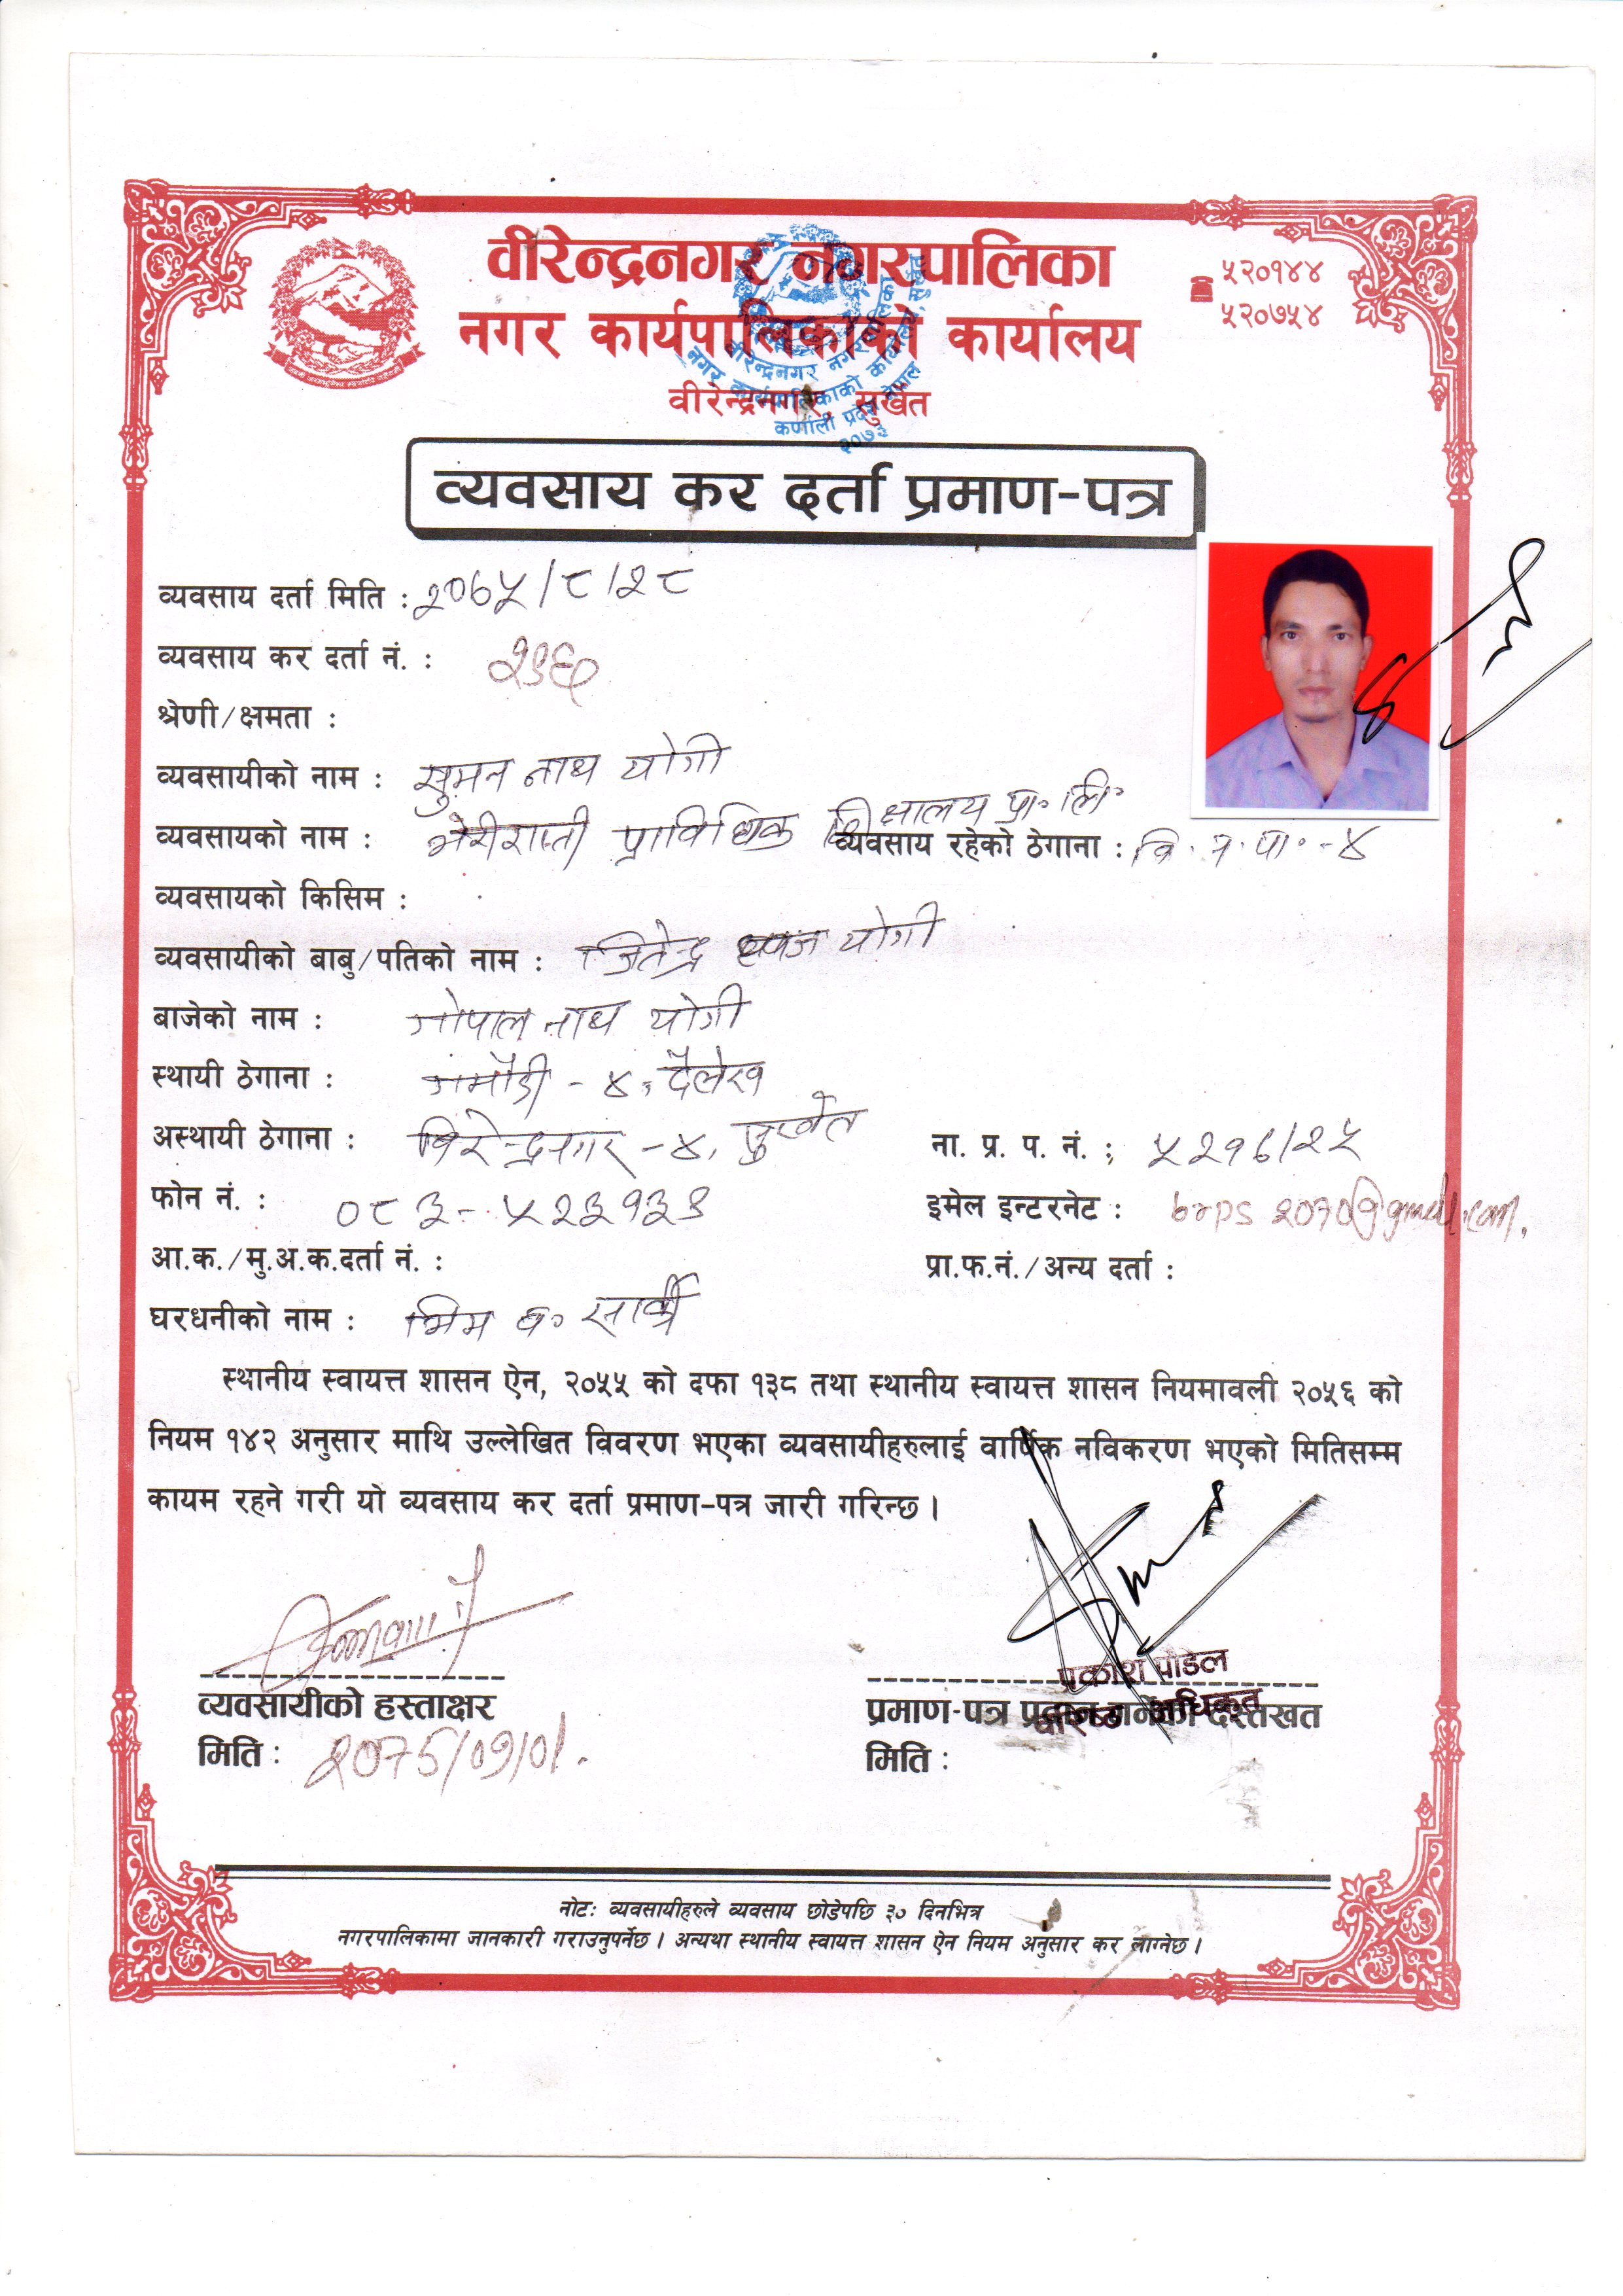 वीरेन्द्रनगर नगरपालिका
नगर कार्यपालिकाको कार्यालय
वीरेन्द्रनगर, सुर्खेत
५२०१४४
५२०७५४
वीरेन्द्रनगर नगरपालिका
नगर कार्यपालिकाको कार्यालय, सुर्खेत
कर्णाली प्रदेश नेपाल
२०७३
व्यवसाय कर दर्ता प्रमाण-पत्र
व्यवसाय दर्ता मिति : २०७५/८/२८
व्यवसाय कर दर्ता नं. :
श्रेणी/क्षमता :
व्यवसायीको नाम : सुमन नाथ योगी
व्यवसायको नाम : भेरीराप्ती प्राविधिक शिक्षालय प्रा॰ लि॰ व्यवसाय रहेको ठेगाना : वि.न.पा॰-४
व्यवसायको किसिम :
व्यवसायीको बाबु/पतिको नाम : जितेन्द्र योगी
बाजेको नाम : गोपाल नाथ योगी
स्थायी ठेगाना : - ४, दैलेख
अस्थायी ठेगाना : विरेन्द्रनगर -४, सुर्खेत ना. प्र. प. नं. : ५२१७/२५
फोन नं. : ०८३-५२३१३९ इमेल इन्टरनेट : brps2070@gmail.com.
आ.क./मु.अ.क.दर्ता नं. : प्रा.फ.नं./अन्य दर्ता :
घरधनीको नाम : भिम ब॰ सार्की
स्थानीय स्वायत्त शासन ऐन, २०५५ को दफा १३८ तथा स्थानीय स्वायत्त शासन नियमावली २०५६ को
नियम १४२ अनुसार माथि उल्लेखित विवरण भएका व्यवसायीहरुलाई वार्षिक नविकरण भएको मितिसम्म
कायम रहने गरी यो व्यवसाय कर दर्ता प्रमाण-पत्र जारी गरिन्छ ।
प्रकाश पौडेल
वरिष्ठ अधिकृत
व्यवसायीको हस्ताक्षर प्रमाण-पत्र प्रदान गर्नेको दस्तखत
मिति : 2075/09/01. मिति :
नोट: व्यवसायीहरुले व्यवसाय छोडेपछि ३० दिनभित्र
नगरपालिकामा जानकारी गराउनुपर्नेछ । अन्यथा स्थानीय स्वायत्त शासन ऐन नियम अनुसार कर लाग्नेछ ।